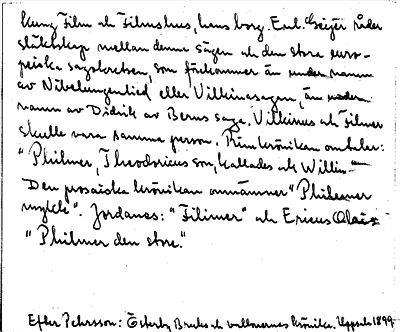 Kung Film och Filmshus, hans borg. Enl. Geijer råder
släktskap mellan denne sägen och den stora euro-
peiska sagokretsen, som förekommer än under namn
av Nibelungenlied eller Vilkinasagan, än under
namn av Didrik av Berns saga. Vilkinus och Filmer
skulle vara samma person. Rimkrönikan omtalar:
"Philmer, Theodoricus son, kallades ok Willin-"
Den prosaiska krönikan omnämner "Philmer
mykle". Jordanes: "Filimer" och Ericus Olai:
"Philmer den store."
Efter Pehrsson: Österby Bruks och vallonernes krönika. Uppsala 1899